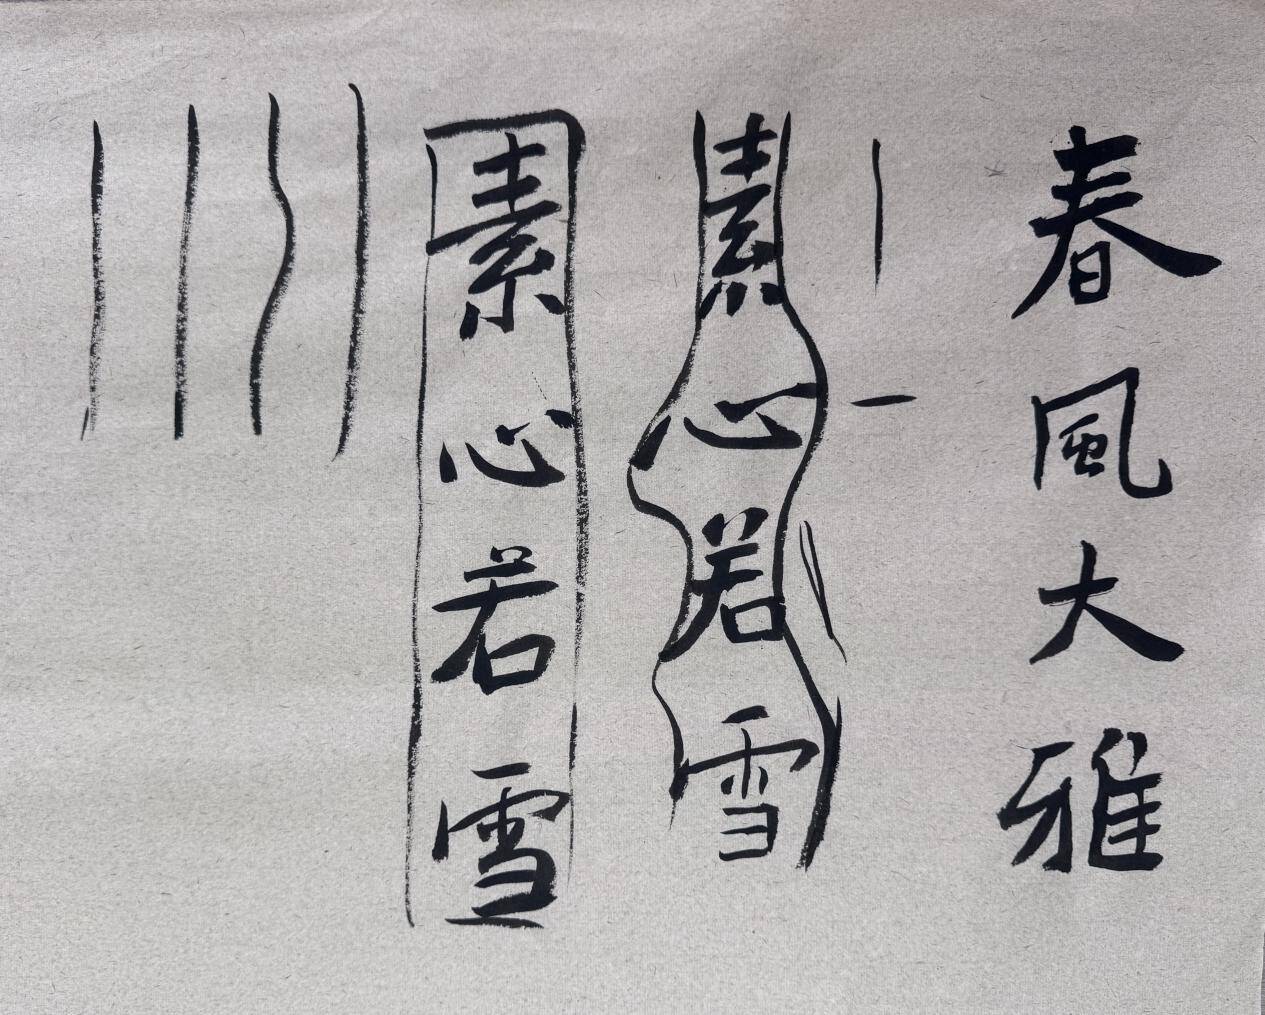 春風大雅
素心若雪
素心若雪